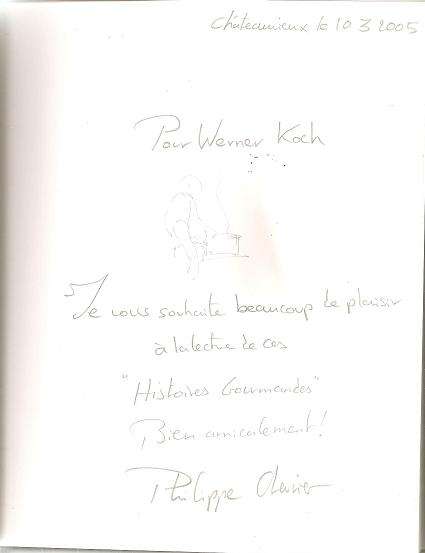 Châteauvieux le 10 3 2005
Pour Werner Koch
Je vous souhaite beaucoup de plaisir
à la lecture de ces
"Histoires Gourmandes"
Bien amicalement!
Philippe